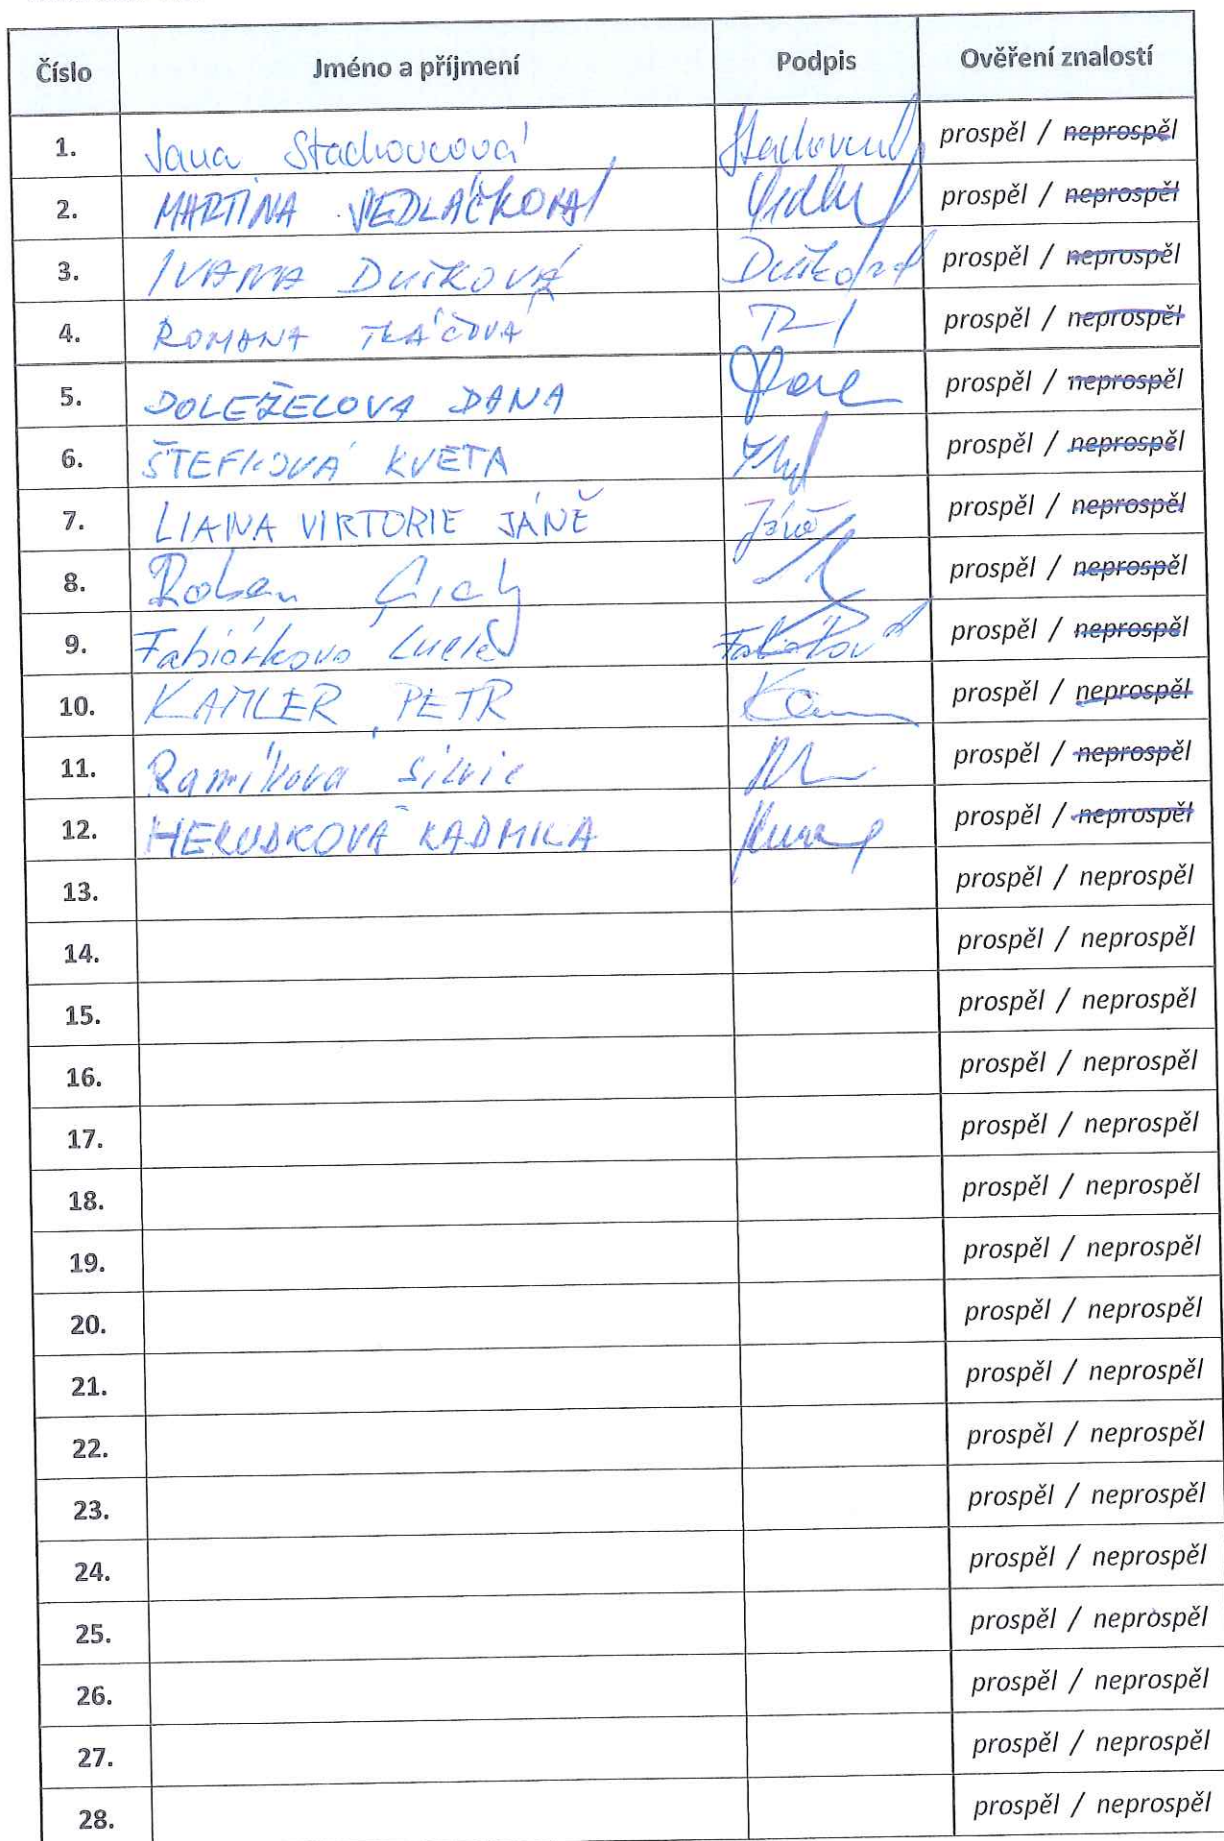 Číslo Jméno a příjmení Podpis Ověření znalostí
1. Jana Stachovcová prospěl / neprospěl
2. MARTINA SEDLÁČKOVÁ prospěl / neprospěl
3. IVANA DUŠKOVÁ prospěl / neprospěl
4. ROMANA TKÁČOVÁ prospěl / neprospěl
5. DOLEŽELOVA DANA prospěl / neprospěl
6. ŠTEFKOVÁ KVETA prospěl / neprospěl
7. LIANA VIKTORIE JÁNĚ Jáně prospěl / neprospěl
8. prospěl / neprospěl
9. prospěl / neprospěl
10. KAMLER PETR prospěl / neprospěl
11. Silvie prospěl / neprospěl
12. prospěl / neprospěl
13. prospěl / neprospěl
14. prospěl / neprospěl
15. prospěl / neprospěl
16. prospěl / neprospěl
17. prospěl / neprospěl
18. prospěl / neprospěl
19. prospěl / neprospěl
20. prospěl / neprospěl
21. prospěl / neprospěl
22. prospěl / neprospěl
23. prospěl / neprospěl
24. prospěl / neprospěl
25. prospěl / neprospěl
26. prospěl / neprospěl
27. prospěl / neprospěl
28. prospěl / neprospěl